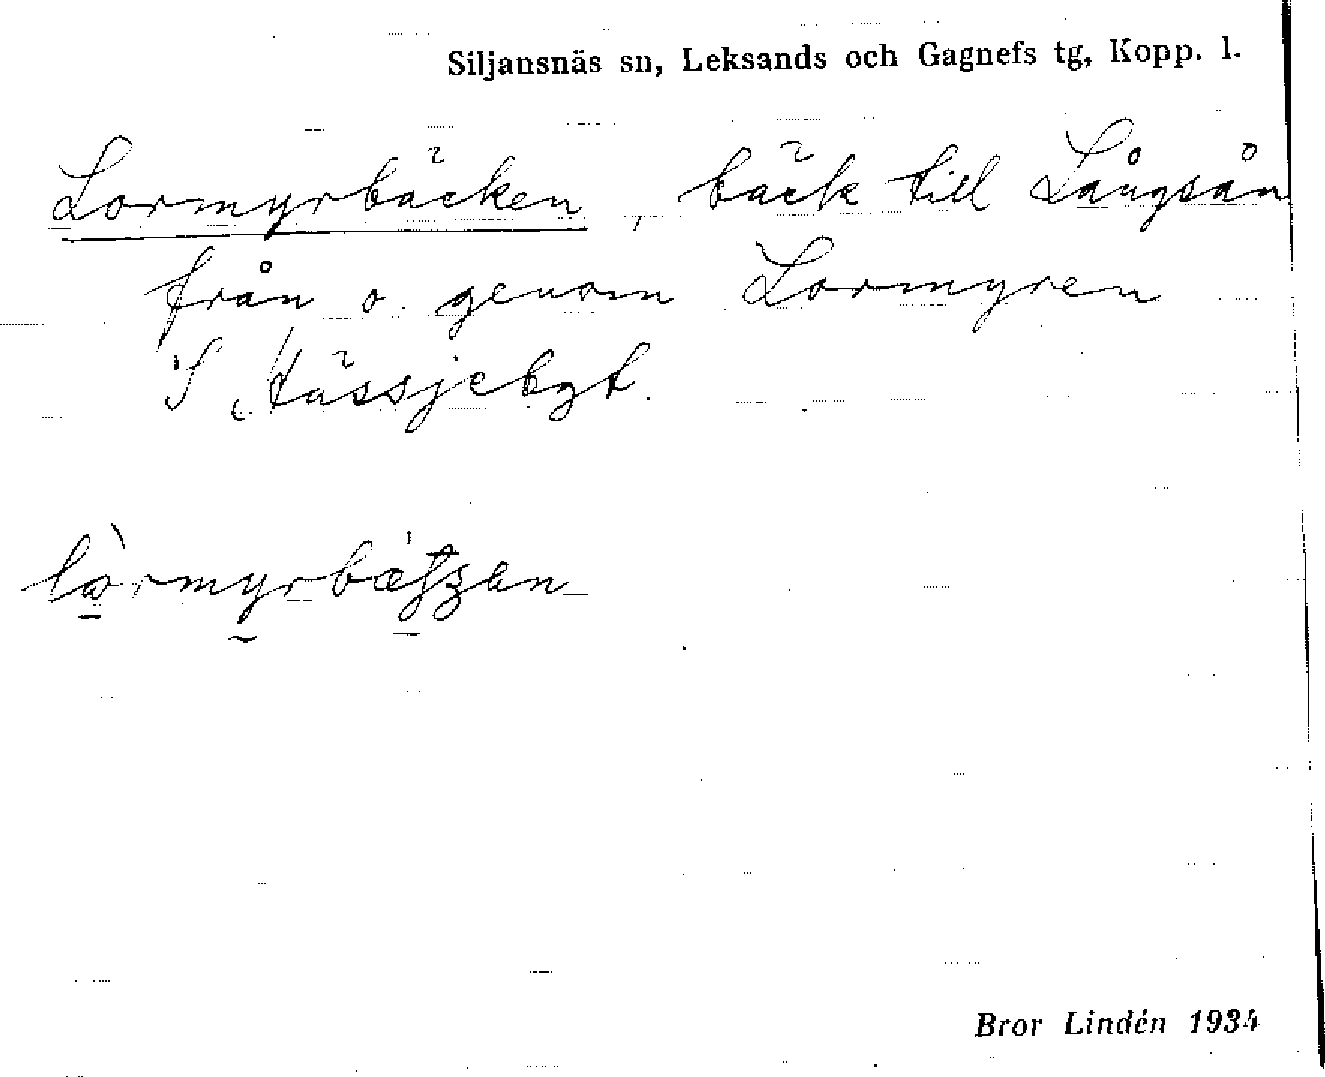 Siljansnäs sn, Leksands och Gagnefs tg, Kopp. l.
Lormyrbäcken, bäck till Långsån
från o. genom Lormyren
S
Bror Lindén 1934